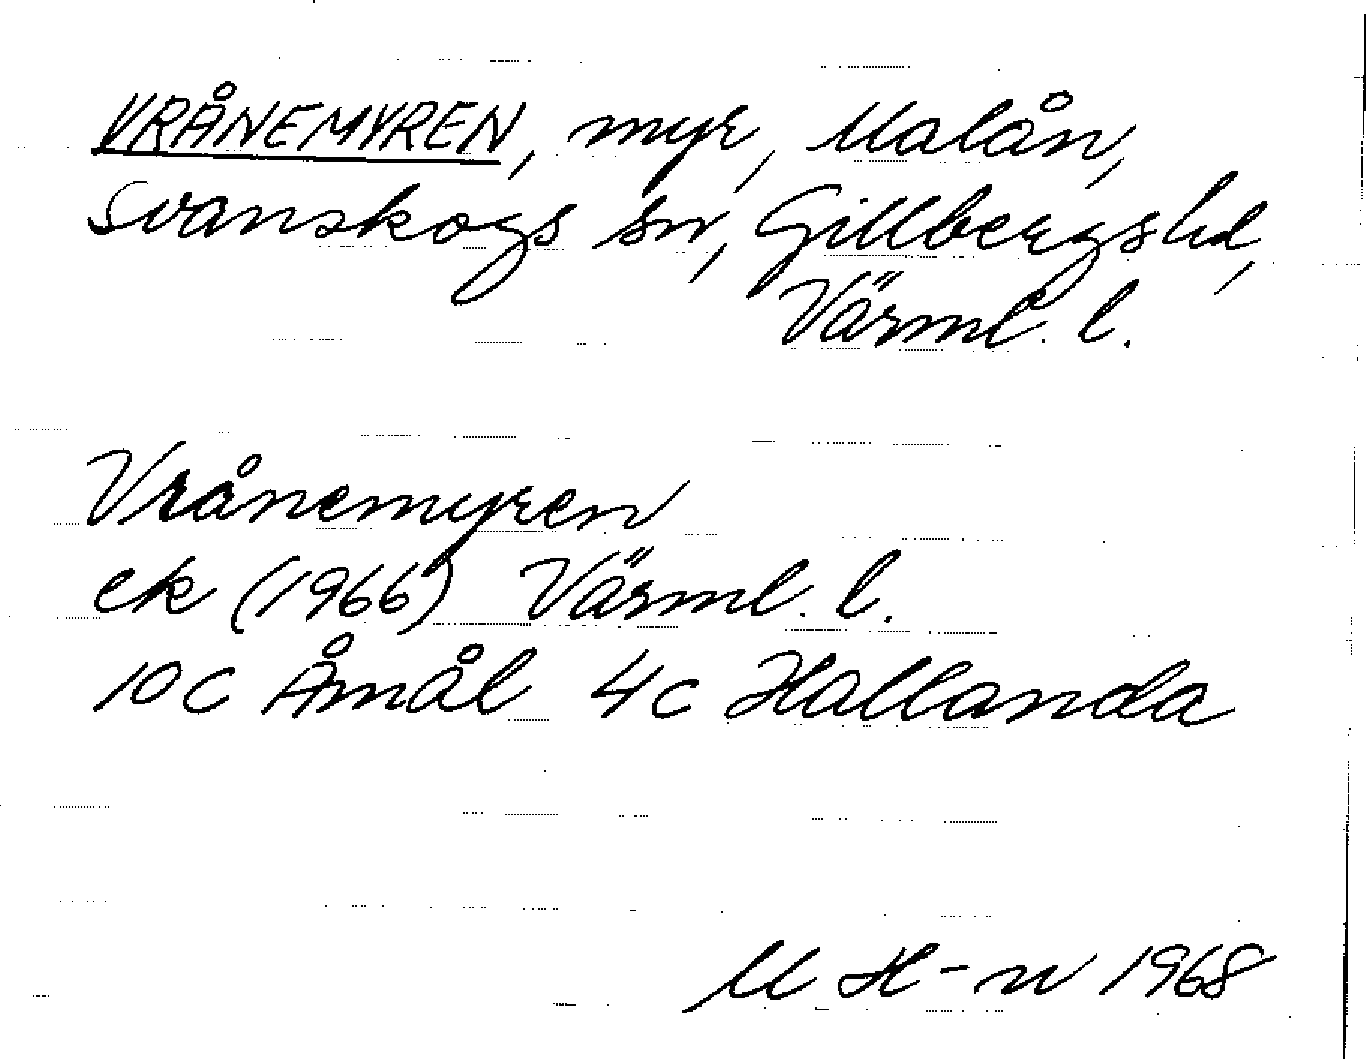 VRÅNEMYREN, myr, Malån,
Svanskogs sn, Gillbergs hd,
Värml. l.
Vrånemyren
ek (1966) Värml. l.
10C Åmål 4c Hallanda
M H-n 1968